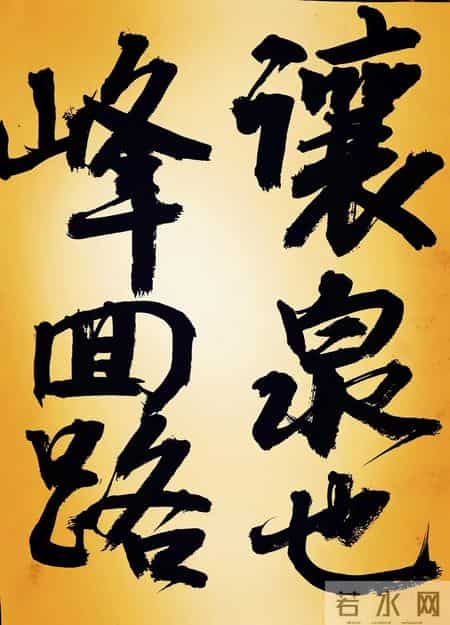 讓泉也
峰回路
若水网